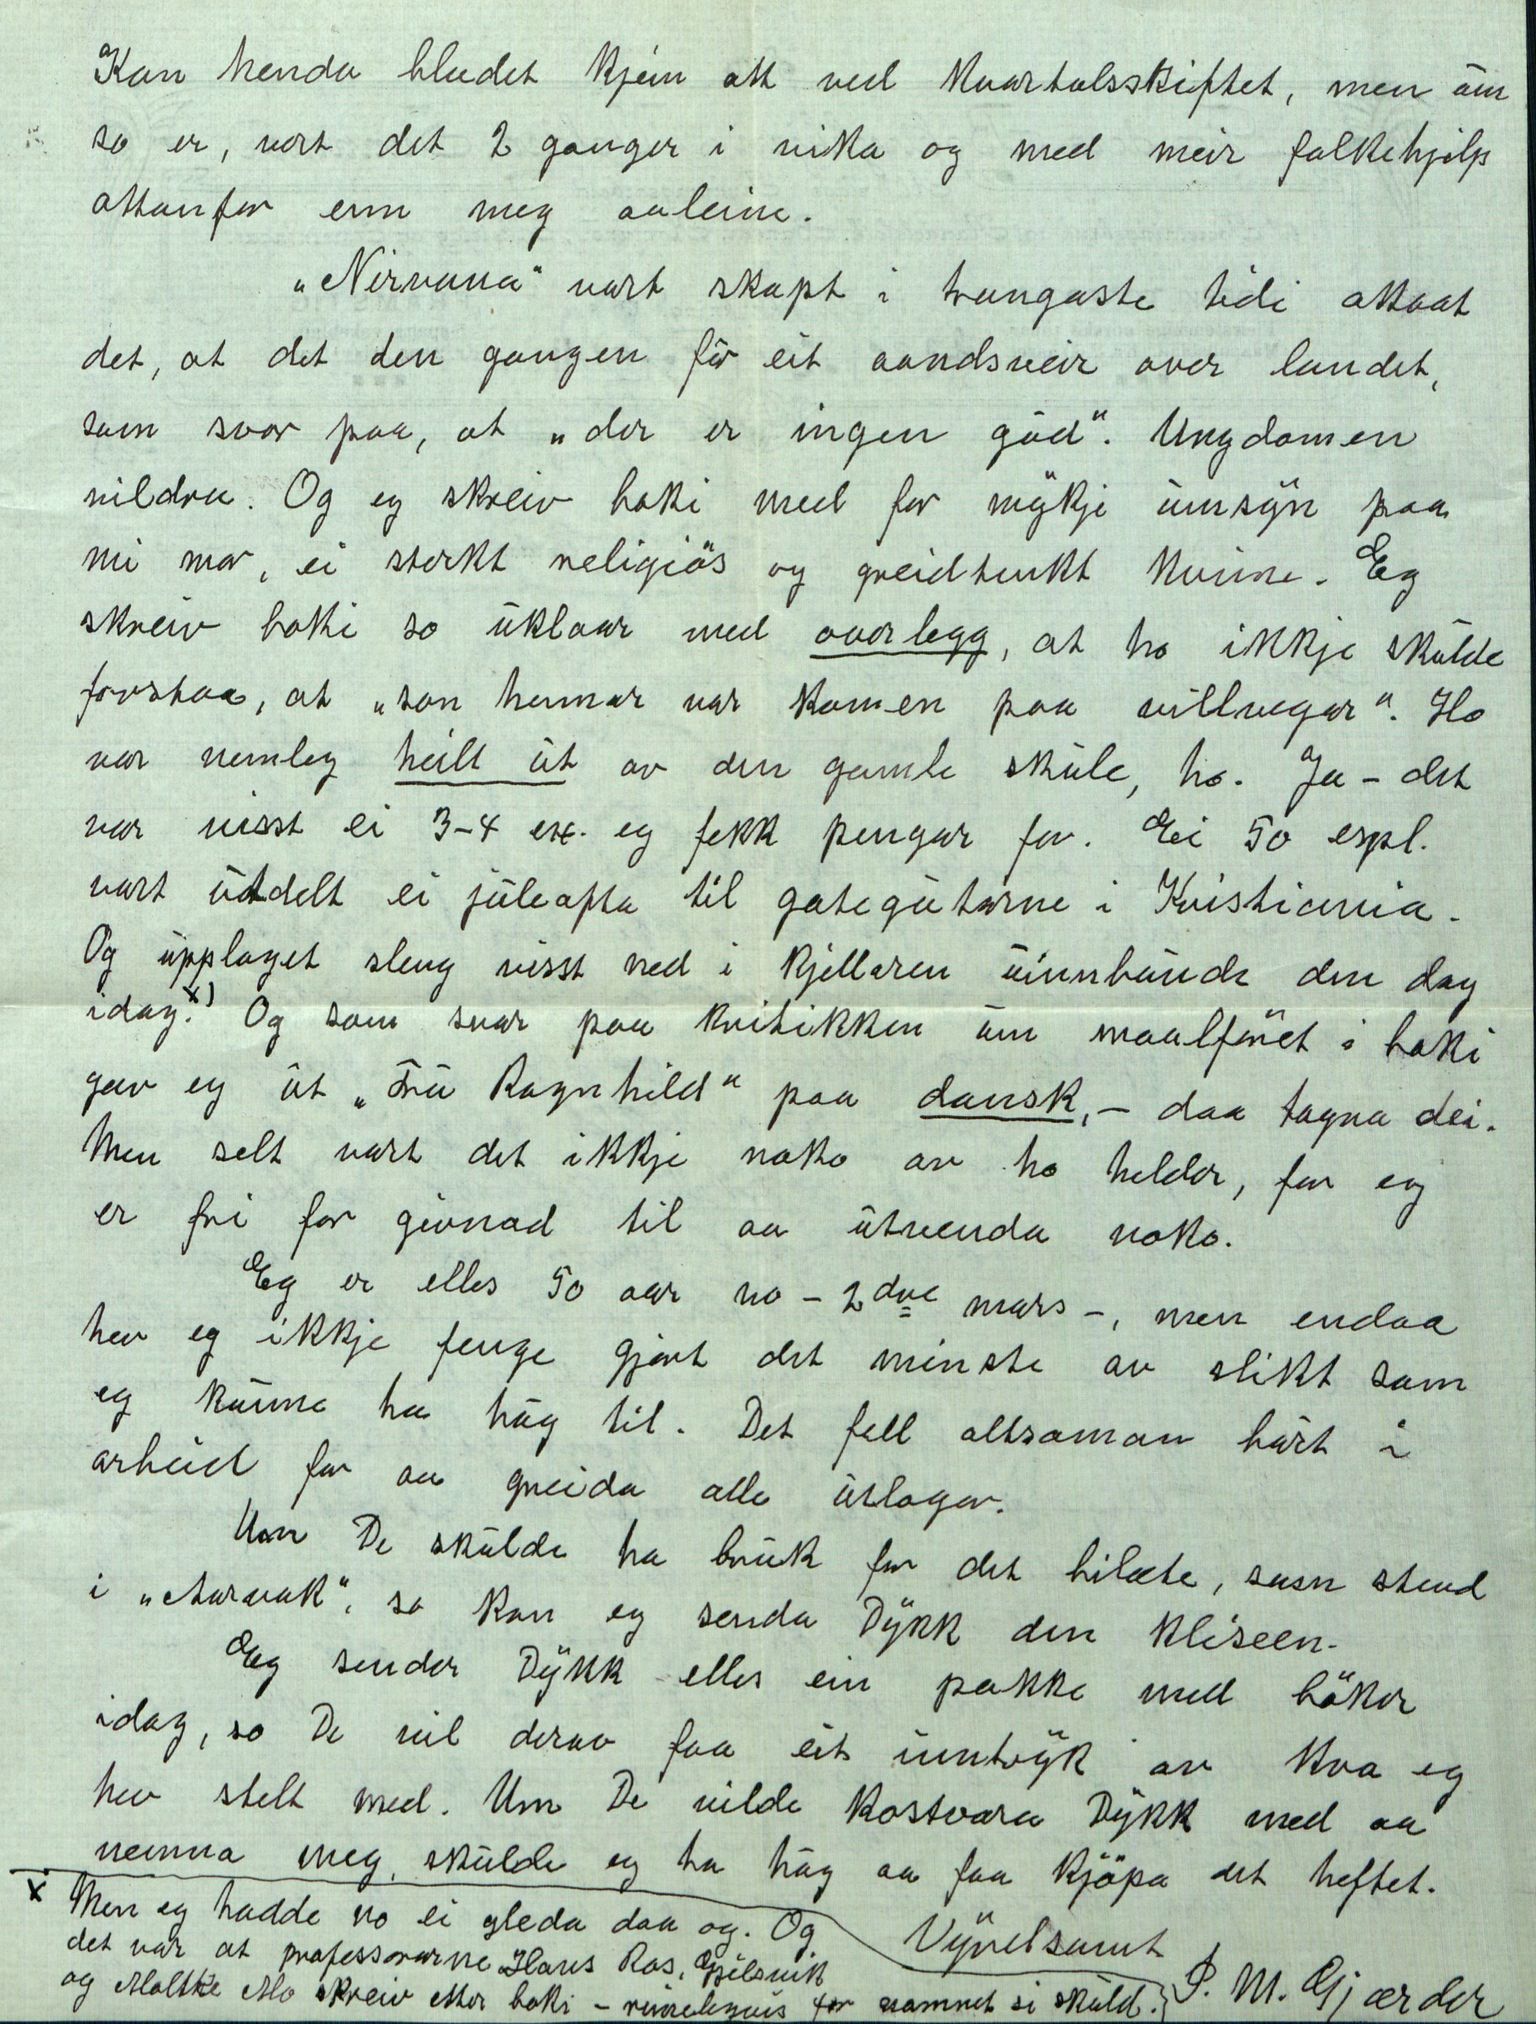 Kan henda bladet kjem att ved kvartalsskiftet, men um
so er, vert det 2 gonger i vika og med meir folkehjelp
attanfor enn meg aaleine.
„Nirvana" vart skapt i trongaste tidi attaat
det, at det den gongen fór eit aandsveir over landet,
som svor paa, at „der er ingen gud". Ungdomen
vildra. Og eg skreiv boki med for mykje umsyn paa
mi mor, ei sterkt religiös og greidtenkt kvinne. Eg
skreiv boki so uklaar med overlegg, at ho ikkje skulde
forstaa, at „son hennar var komen paa villvegar". Ho
var nemleg heilt ut av den gamle skule, ho. Ja – det
var visst ei 3–4 ex. eg fekk pengar for. Ei 50 expl.
vart utdelt ei juleafta til gategutarne i Kristiania.
Og upplaget sleng visst ned i kjellaren uinnbunde den dag
idag.x) Og som svar paa kritikken um maalföret i boki
gav eg ut „Fru Ragnhild" paa dansk, – daa tagna dei.
Men selt vart det ikkje noko av ho helder, for eg
er fri for givnad til aa utvenda noko.
Eg er elles 50 aar no – 2dre mars –, men endaa
hev eg ikkje fenge gjort det minste av slikt som
eg kunne ha hug til. Det fell altsaman burt i
arbeid for aa greida alle utlogor.
Um De skulde ha bruk for det bilæte, som stend
i „Aarvak", so kan eg senda Dykk den kliseen.
Eg sender Dykk elles ein pakke med böker
idag, so De vil derav faa eit inntryk av kva eg
hev stelt med. Um De vilde kostvara Dykk med aa
nemna meg, skulde eg ha hug aa faa kjöpa det heftet.
Vyrdsamt
P. M. Gjærder
x Men eg hadde no ei gleda daa og. Og
det var at professorarne Hans Ros, Gjelsvik
og Moltke Mo skreiv etter boki – rimelegvis for namnet si skuld.